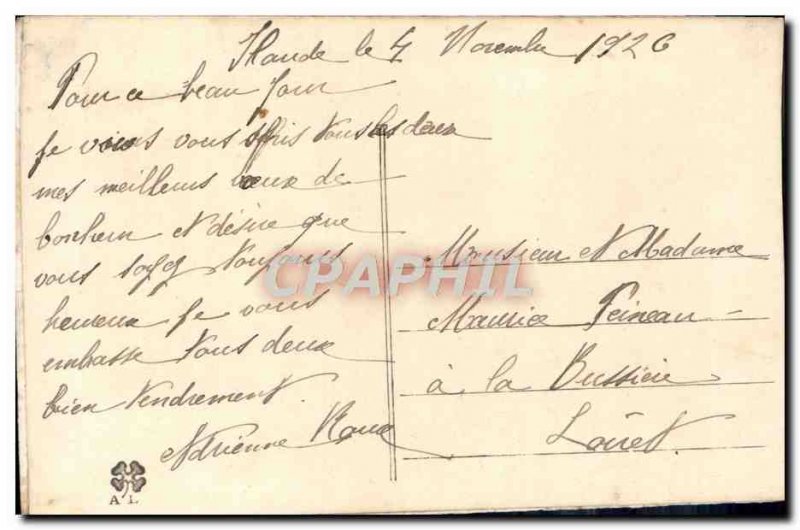 le 4 Novembre 1926
Pour ce beau Jour
Je viens vous offris tous les deux
mes meilleurs veux de
bonheur et désire que
vous soyez toujours
heureux Je vous
embasse tous deux
bien tendrement.
Adrienne Roux
Monsieur et Madame
Maurice Peineau
à la Bussière
Loiret.
CPAPHIL
A L